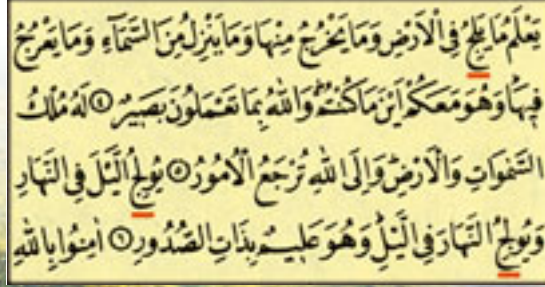 يَعْلَمُ مَا يَلِجُ فِي الْاَرْضِ وَمَا يَخْرُجُ مِنْهَا وَمَا يَنْزِلُ مِنَ السَّمَٓاءِ وَمَا يَعْرُجُ
ف۪يهَاۜ وَهُوَ مَعَكُمْ اَيْنَ مَا كُنْتُمْۜ وَاللّٰهُ بِمَا تَعْمَلُونَ بَص۪يرٌ ﴿٤﴾ لَهُ مُلْكُ
السَّمٰوَاتِ وَالْاَرْضِۜ وَاِلَى اللّٰهِ تُرْجَعُ الْاُمُورُ ﴿٥﴾ يُولِجُ الَّيْلَ فِي النَّهَارِ
وَيُولِجُ النَّهَارَ فِي الَّيْلِۜ وَهُوَ عَل۪يمٌ بِذَاتِ الصُّدُورِ ﴿٦﴾ اٰمِنُوا بِاللّٰهِ